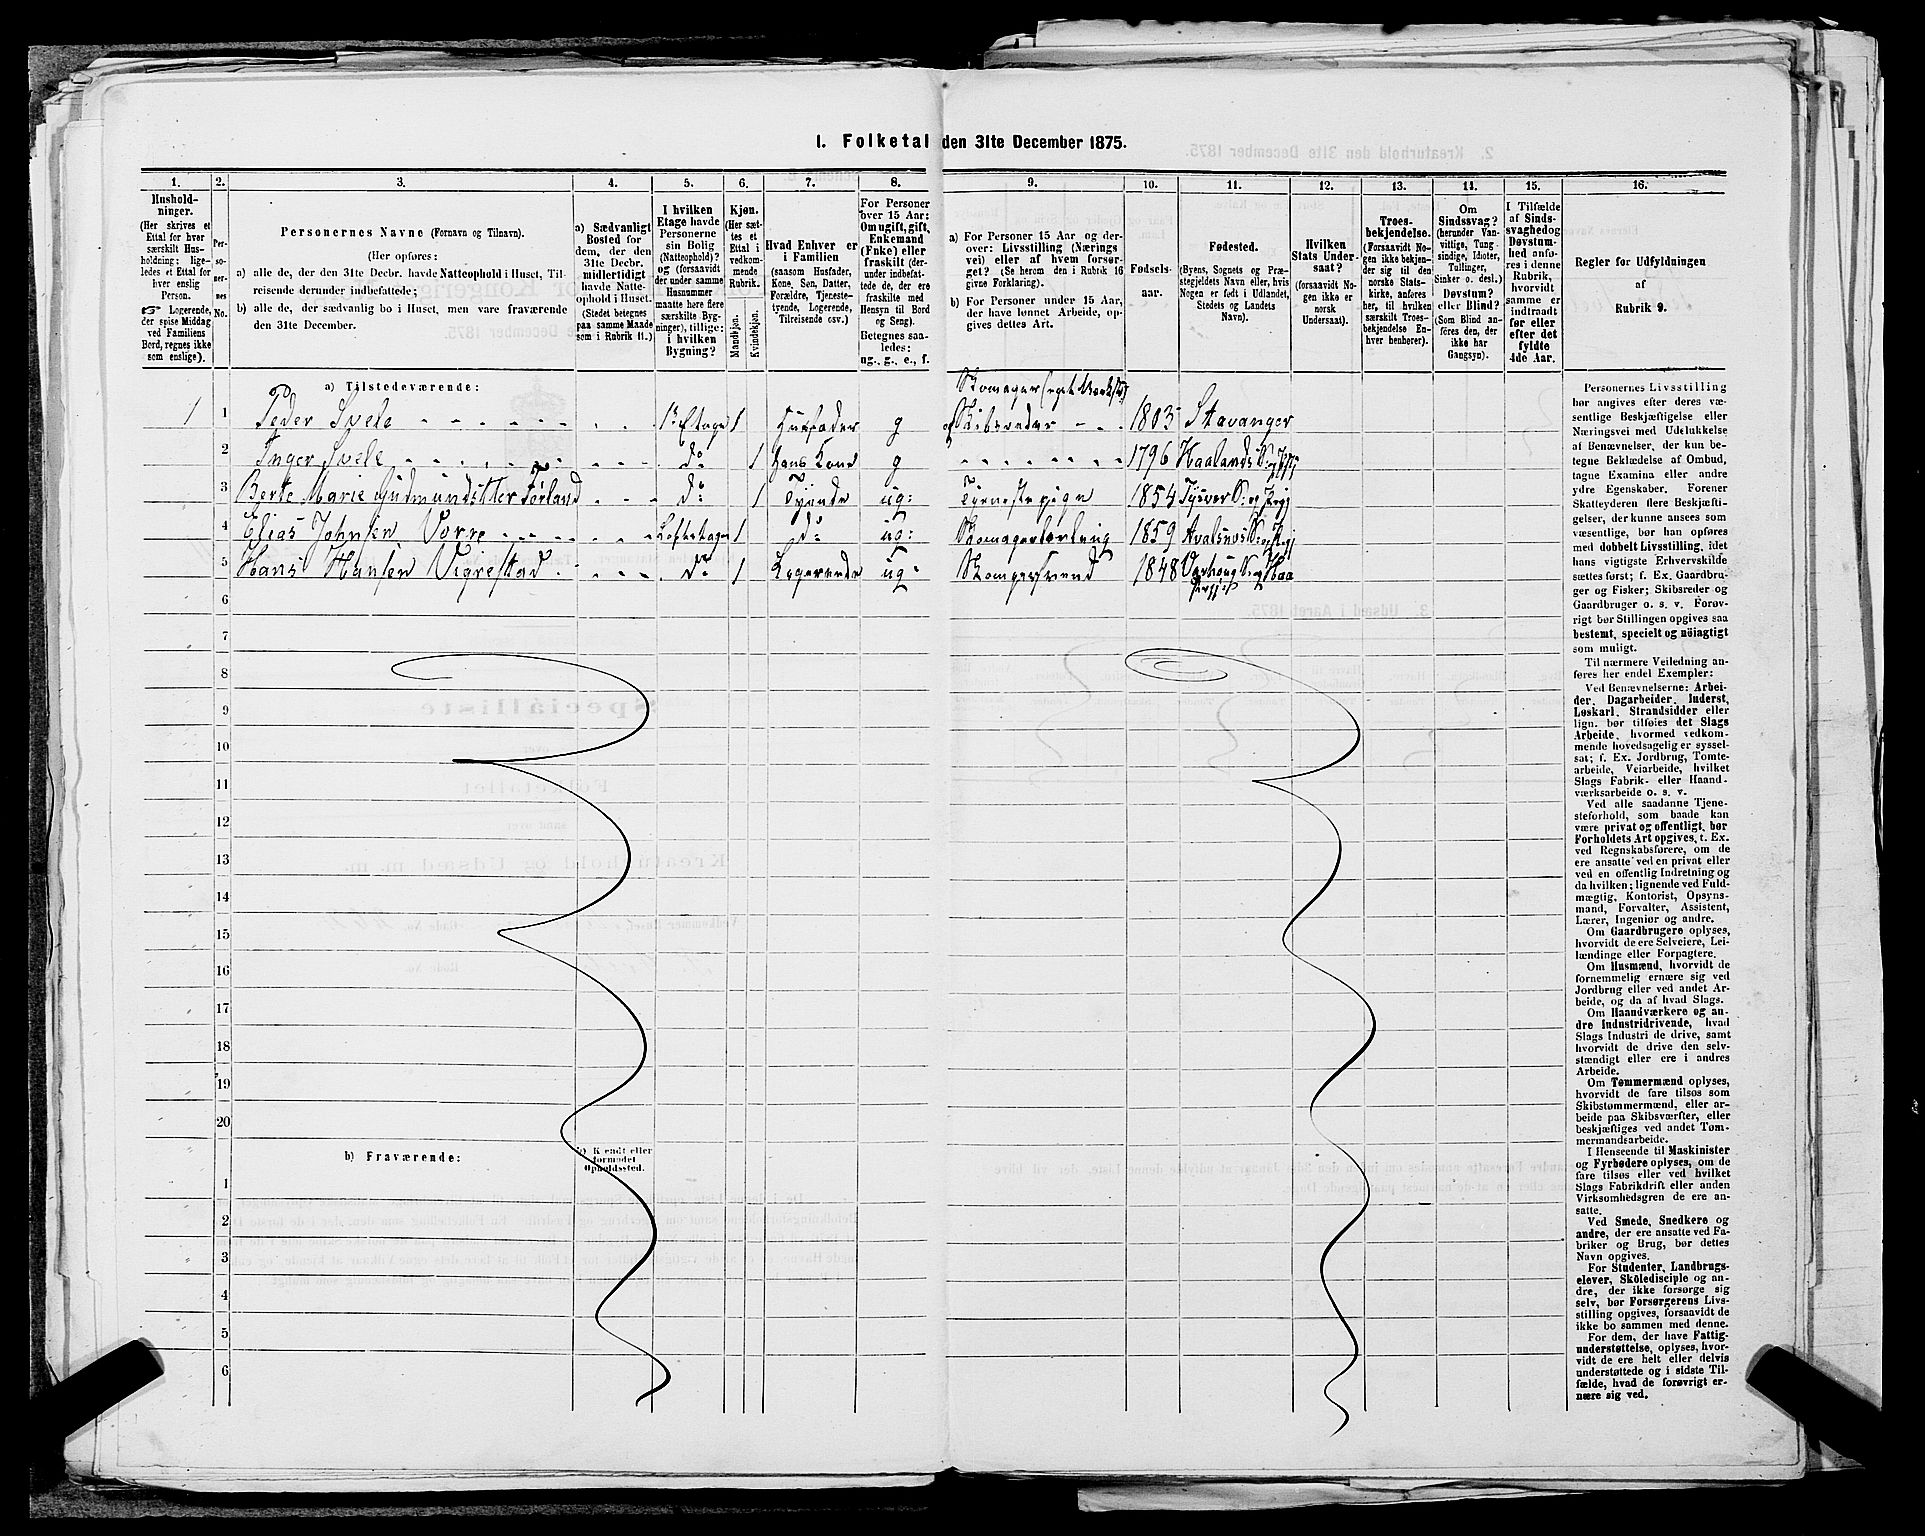 1. Folketal den 31te December 1875.
1. 2. 3. 4. 5. 6. 7. 8. 9. 10. 11. 12. 13. 14. 15. 16.
Hushold-
ninger.
(Her skrives et
Ettal for hver
særskilt Hus-
holdning; lige-
ledes et Ettal for
hver enslig
Person.
☞ Logerende,
der spise Middag
ved Familiens
Bord, regnes ikke
som enslige).
Per-
so-
ner-
nes
No.
Personernes Navne (Fornavn og Tilnavn).
(Her opføres:
a) alle de, der den 31te Decbr. havde Natteophold i Huset, Til-
reisende derunder indbefattede;
b) alle de, der sædvanlig bo i Huset, men vare fraværende
den 31te December.
a) Sædvanligt
Bosted for
dem, der den
31te Decbr.
midlertidigt
havde Natte-
ophold i Huset.
(Stedet betegnes
paa samme Maade
som i Rubrik 11.)
I hvilken
Etage havde
Personerne
sin Bolig
(Natteophold)?
og (forsaavidt
der under samme
Husnummer
maatte høre flere
særskilte Byg-
ninger), tillige:
i hvilken
Bygning?
Kjøn.
(Her sæt-
tes et
Ettal i
vedkom-
mende
Rubrik.
Mandkjøn.
Kvindekjøn.
Hvad Enhver er
i Familien
(saasom Husfader,
Kone, Søn, Datter,
Forældre, Tjeneste-
tyende, Logerende,
Tilreisende osv.)
For Personer
over 15 Aar:
Om ugift, gift,
Enkemand
(Enke) eller
fraskilt (der-
under indbefat-
tede de, der ere
fraskilte med
Hensyn til Bord
og Seng).
Betegnes saa-
ledes:
ug., g., e., f.
a) For Personer 15 Aar og der-
over: Livsstilling (Nærings
vei) eller af hvem forsør-
get? (Se herom den i Rubrik 16
givne Forklaring).
b) For Personer under 15 Aar,
der have lønnet Arbeide, op-
gives dettes Art.
Fødsels-
aar.
Fødested.
(Byens, Sognets og Præ-
stegjeldets Navn eller, hvis
Nogen er født i Udlandet,
Stedets og Landets
Navn).
Hvilken
Stats Under-
saat?
(forsaavidt No-
gen ikke er
norsk
Undersaat).
Troes-
bekjendelse.
(Forsaavidt No-
gen ikke bekjen-
der sig til den
norske Stats-
kirke, anføres
her, til hvilken
særskilt Troes-
bekjendelse En-
hver henhører).
Om
Sindssvag?
(herunder Van-
vittige, Tung
sindige, Idioter,
Tullinger,
Sinker o. desl.)
Døvstum?
eller Blind?
(Som Blind an-
føres den, der
ikke har
Gangsyn).
I Tilfælde
af Sinds-
svaghed og
Døvstum-
hed anfø-
res i denne
Rubrik,
hvorvidt
samme er
indtraadt
før eller
efter det
fyldte
4de Aar.
Regler for Udfyldningen
af
Rubrik 9.
a) Tilstedeværende:
Skomager
1 1 Peder Svele 1ste Etage 1 Husfader g Skibsreder 1803 Stavanger
2 Inger Svele do 1 hans Kone g 1796 Haalands
3 Berte Marie Gudmundsdtter Førland do 1 Tjende ug: Tjenestepige 1854 Tysver S. og
4 Elias Johnsen Vorre Loftetage 1 do ug: Skomagerlærling 1859 Avalsnes
5 Hans Hansen Vigrestad do 1 Logerende ug: 1848 Varhoug S. og Haa
6
7
8
9
10
11
12
13
14
15
16
17
18
19
20
b) Fraværende:
b) Kjendt eller
formodet
Opholdssted.
1
2
3
4
5
6
Personernes Livsstilling
bør angives efter deres væ-
sentlige Beskjæftigelse eller
Næringsvei med Udelukkelse
af Benævnelser, der kun be-
tegne Beklædelse af Ombud,
tagne Examina eller andre
ydre Egenskaber. Forener
Skatteyderen flere Beskjæfti-
gelser, der kunne ansees som
væsentlige, bør han opføres
med dobbelt Livsstilling, idet
hans vigtigste Erhvervskilde
sættes først; f. Ex. Gaardbru-
ger og Fisker; Skibsreder og
Gaardbruger o. s. v. Forøv-
rigt bør Stillingen opgives saa
bestemt, specielt og nöiagtigt
som muligt.
Til nærmere Veiledning an-
føres her endel Exempler:
Ved Benævnelserne: Arbei-
der, Dagarbeider, Inderst,
Løskarl, Strandsidder eller
lign. bør tilføies det Slags
Arbeide, hvormed vedkom-
mende hovedsagelig er syssel-
sat; f. Ex. Jordbrug, Tomte-
arbeide, Veiarbeide, hvilket
Slags Fabrik- eller Haand-
værksarbeide o. s. v.
Ved alle saadanne Tjene-
steforhold, som baade kan
være privat og offentligt, bør
Forholdets Art opgives, t. Ex.
ved Regnskabsførere, om de
ere ansatte ved en privat eller
ved en offentlig Indretning og
da hvilken; lignende ved Fuld-
mægtig, Kontorist, Opsyns-
mand, Forvalter, Assistent,
Lærer, Ingeniør og andre.
Om Gaardbrugere oplyses,
hvorvidt de ere Selveiere, Lei-
lændinge eller Forpagtere.
Om Husmænd, hvorvidt de
fornemmelig ernære sig ved
Jordbrug eller ved andet Ar-
beide, og da af hvad Slags.
Om Haandværkere og an-
dre Industridrivende, hvad
Slags Industri de drive, samt
hvorvidt de drive den selv-
stændigt eller ere i andres
Arbeide.
Om Tømmermænd oplyses,
hvorvidt de fare tilsøs som
Skibstømmermænd, eller ar-
beide paa Skibsværfter, eller
beskjæftiges ved andet Tøm-
mermandsarbeide.
I Henseende til Maskinister
og Fyrbødere oplyses, om de
fare tilsøs eller ved hvilket
Slags Fabrikdrift eller anden
Virksomhedsgren de ere an-
satte.
Ved Smede, Snedkere og
andre, der ere ansatte ved Fa-
briker og Brug, bør dettes
Navn opgives.
For Studenter, Landbrugs-
elever, Skoledisciple og an-
dre, der ikke forsørge sig
selv, bør Forsørgerens Livs-
stilling opgives, forsaavidt de
ikke bo sammen med denne.
For dem, der have Fattig-
understøttelse, oplyses, hvor-
vidt de ere helt eller delvis
understøttede og i sidste Til-
fælde, hvad de forøvrigt er-
nære sig ved.